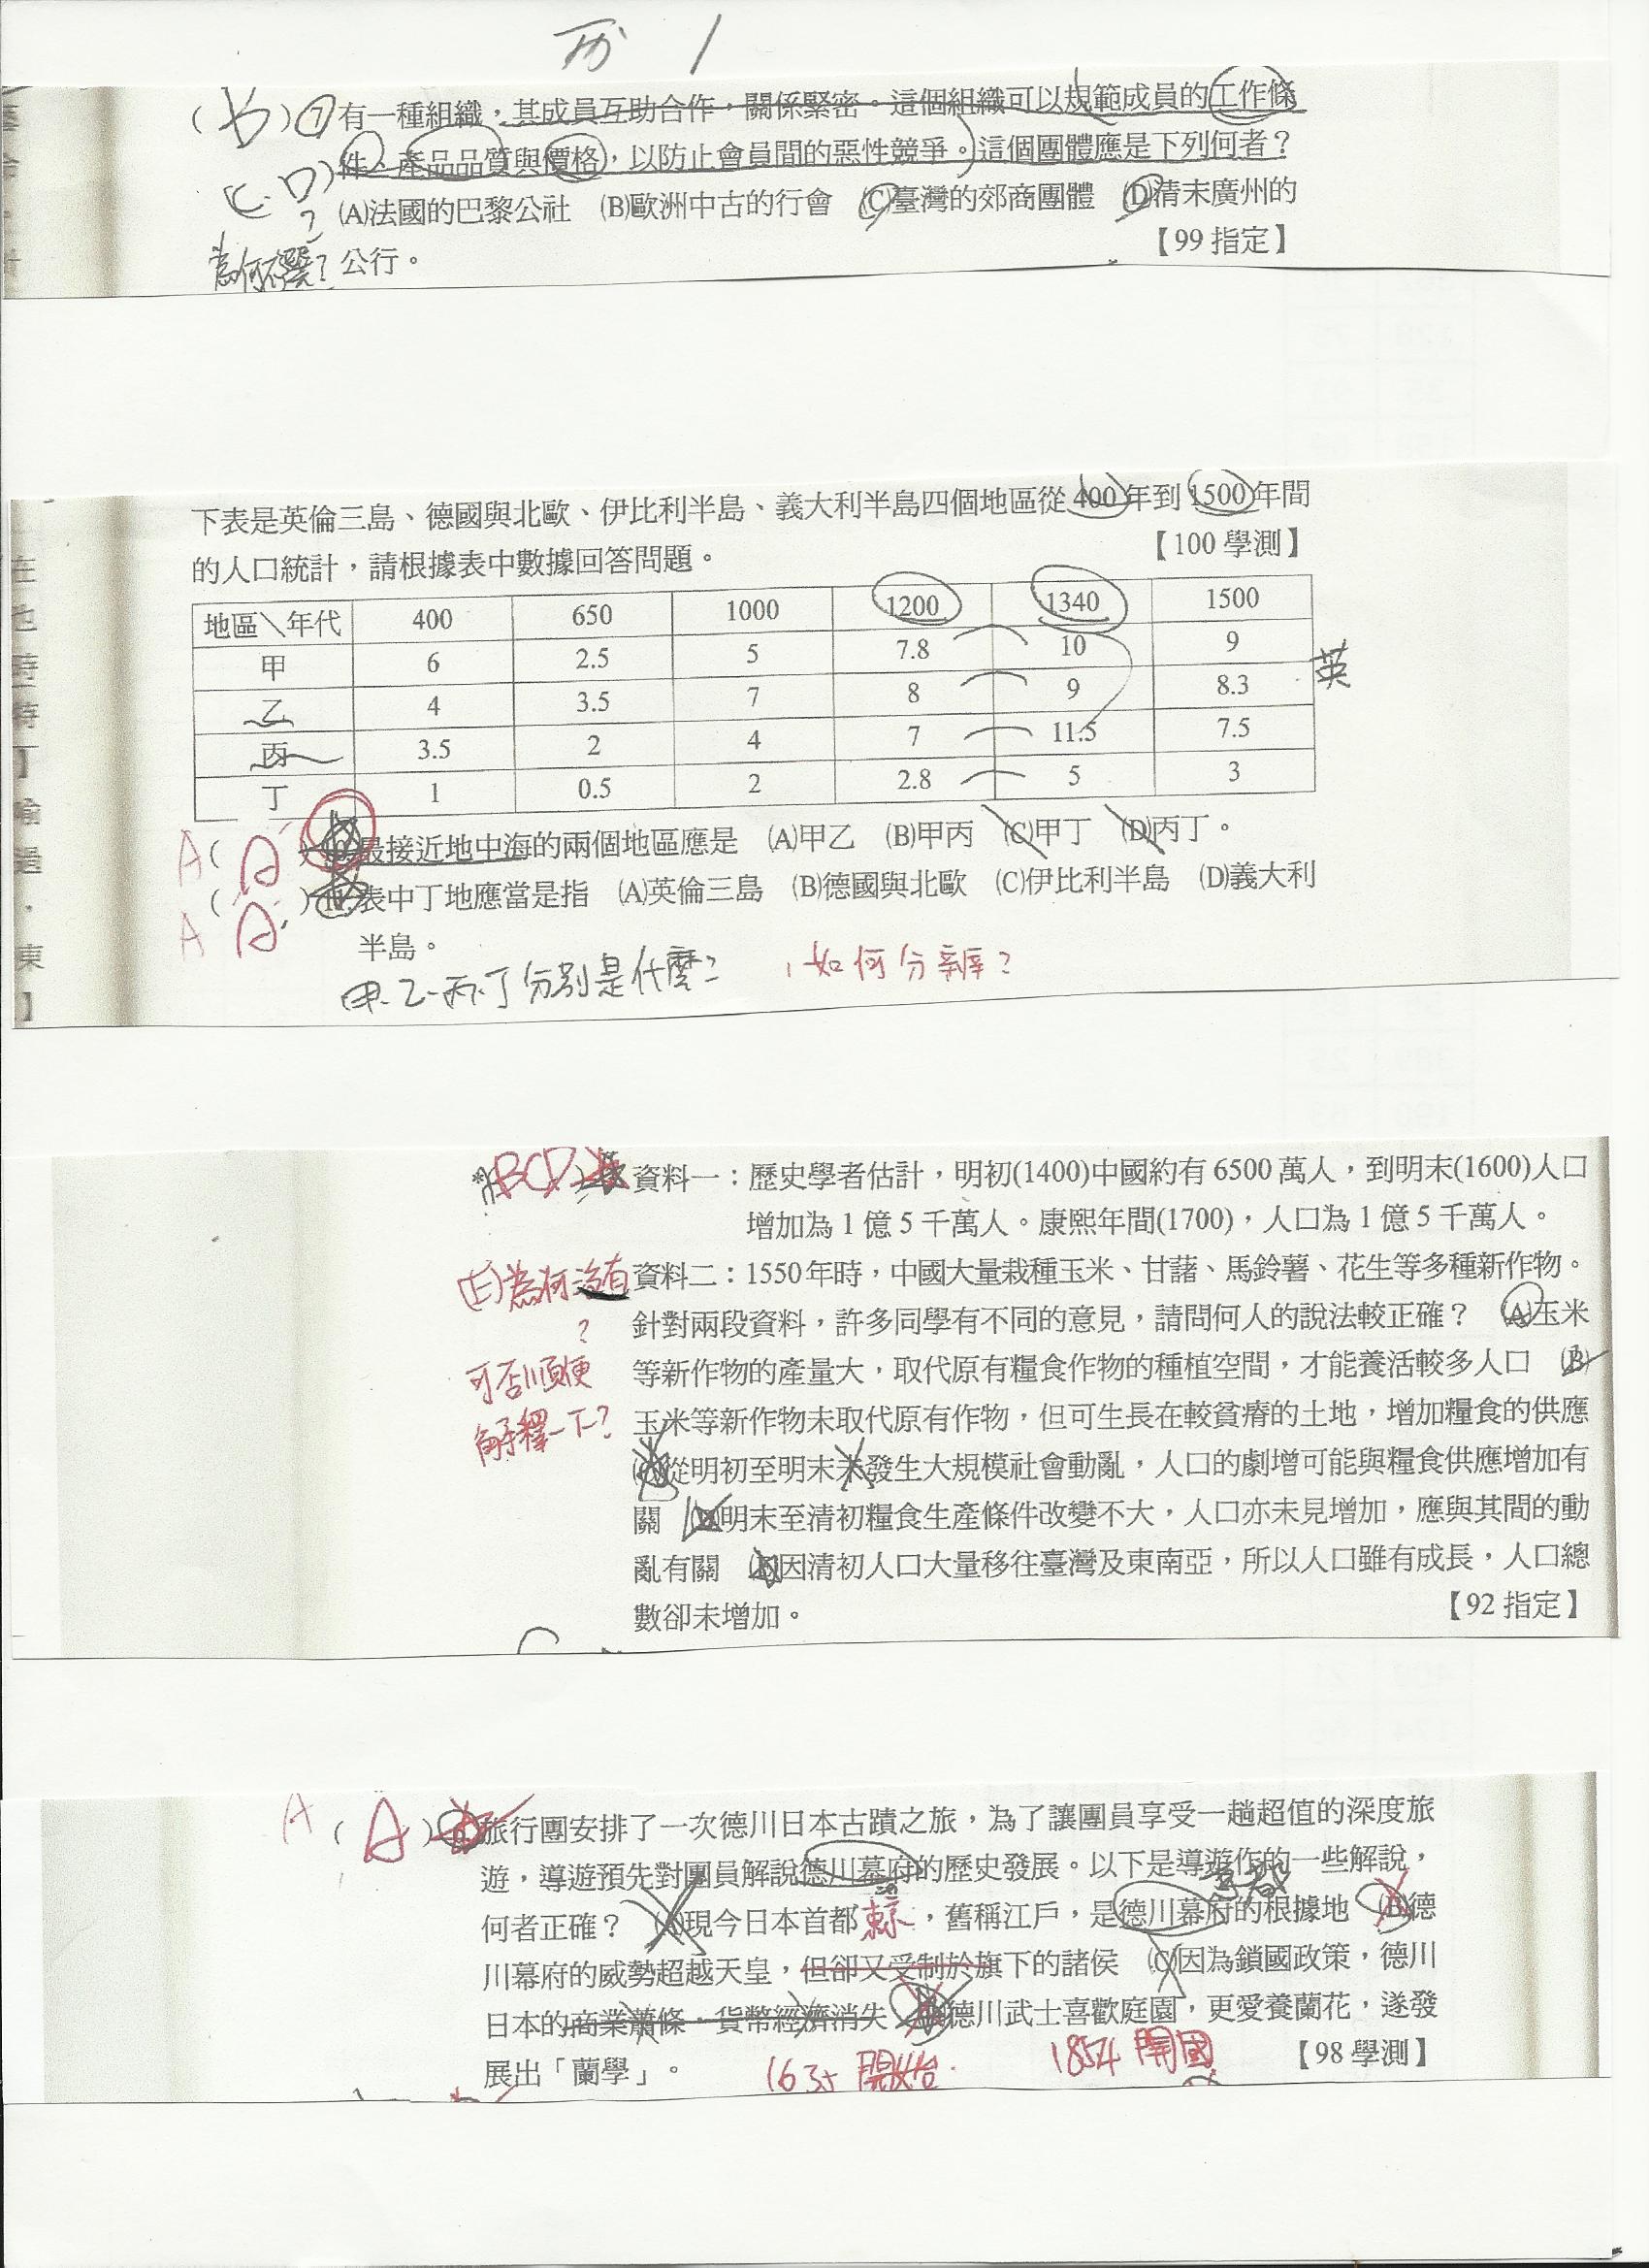 (B)7.有一種組織，其成員互助合作，關係緊密。這個組織可以規範成員的工作條
件、產品品質與價格，以防止會員間的惡性競爭。這個團體應是下列何者？
(C.D)
?
(A)法國的巴黎公社 (B)歐洲中古的行會 (C)臺灣的郊商團體 (D)清末廣州的
公行。
【99 指定】
為何不選?
下表是英倫三島、德國與北歐、伊比利半島、義大利半島四個地區從400年到1500年間
的人口統計，請根據表中數據回答問題。
【100 學測】
地區＼年代 400 650 1000 1200 1340 1500
甲 6 2.5 5 7.8 10 9
英
乙 4 3.5 7 8 9 8.3
丙 3.5 2 4 7 11.5 7.5
丁 1 0.5 2 2.8 5 3
A(A)最接近地中海的兩個地區應是 (A)甲乙 (B)甲丙 (C)甲丁 (D)丙丁。
A(A)表中丁地應當是指 (A)英倫三島 (B)德國與北歐 (C)伊比利半島 (D)義大利
半島。
甲.乙.丙.丁分別是什麼?
如何分辨?
*(BCD)資料一：歷史學者估計，明初(1400)中國約有 6500 萬人，到明末(1600)人口
增加為 1 億 5 千萬人。康熙年間(1700)，人口為 1 億 5 千萬人。
資料二：1550年時，中國大量栽種玉米、甘藷、馬鈴薯、花生等多種新作物。
針對兩段資料，許多同學有不同的意見，請問何人的說法較正確？ (A)玉米
等新作物的產量大，取代原有糧食作物的種植空間，才能養活較多人口 (B)
玉米等新作物未取代原有作物，但可生長在較貧瘠的土地，增加糧食的供應
(C)從明初至明末未發生大規模社會動亂，人口的劇增可能與糧食供應增加有
關 (D)明末至清初糧食生產條件改變不大，人口亦未見增加，應與其間的動
亂有關 (E)因清初人口大量移往臺灣及東南亞，所以人口雖有成長，人口總
數卻未增加。
【92 指定】
(E)為何沒有
?
可否順便
解釋一下?
A(A)旅行團安排了一次德川日本古蹟之旅，為了讓團員享受一趟超值的深度旅
遊，導遊預先對團員解說德川幕府的歷史發展。以下是導遊作的一些解說，
何者正確？ (A)現今日本首都東京，舊稱江戶，是德川幕府的根據地 (B)德
川幕府的威勢超越天皇，但卻又受制於旗下的諸侯 (C)因為鎖國政策，德川
日本的商業蕭條，貨幣經濟消失 (D)德川武士喜歡庭園，更愛養蘭花，遂發
展出「蘭學」。
【98 學測】
開始
1854 開國